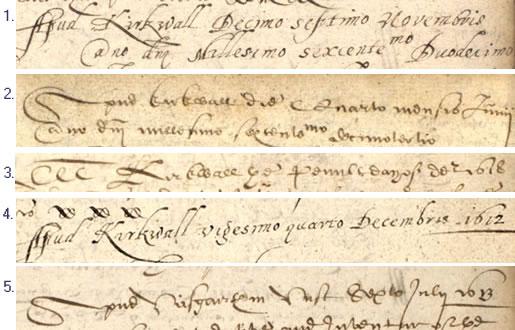 1. Apud Kirkwall Decimo septimo Novembris
Ano dnj Millesimo sexcente^mo Duodecimo
2. Apud kirkwall die Quarto mensis Junij
Ano dnj millesimo sexcente^mo decimotertio
3. Kirkwall the penult day of 1618
4. Apud Kirkwall vigesimo quarto Decembris 1612
5. Apud Sexto Julij 1613
and Inventar